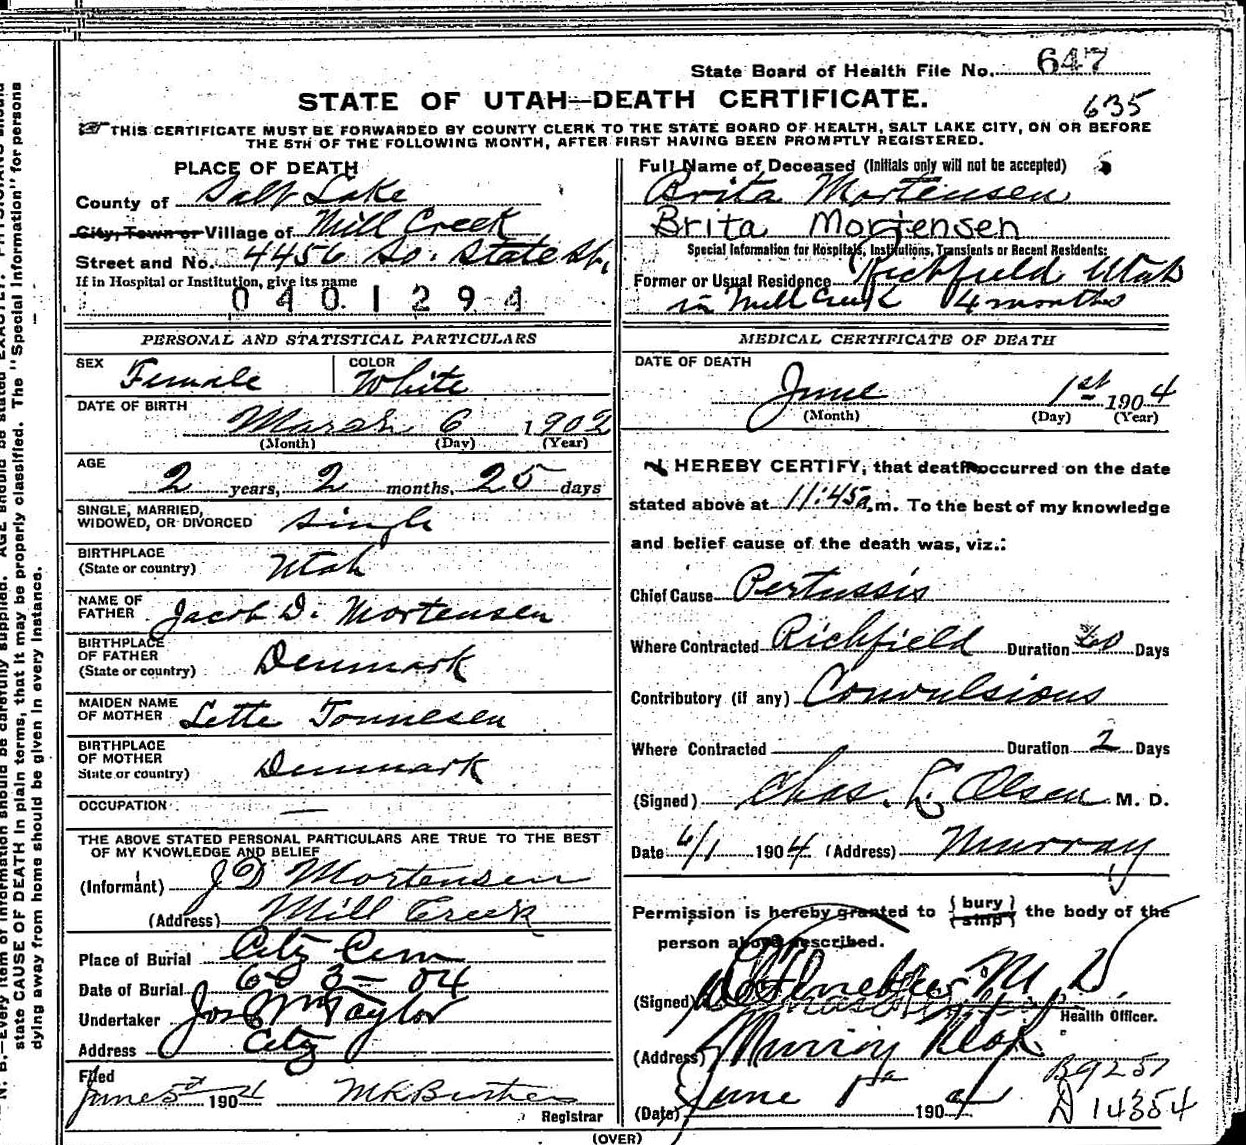 State Board of Health File No. 647
STATE OF UTAH—DEATH CERTIFICATE.
635
THIS CERTIFICATE MUST BE FORWARDED BY COUNTY CLERK TO THE STATE BOARD OF HEALTH, SALT LAKE CITY, ON OR BEFORE
THE 5TH OF THE FOLLOWING MONTH, AFTER FIRST HAVING BEEN PROMPTLY REGISTERED.
PLACE OF DEATH
County of Salt Lake
City, Town or Village of Mill Creek
Street and No. 4456 So. State St.
If in Hospital or Institution, give its name
0401294
Full Name of Deceased (Initials only will not be accepted)
Brita Mortensen
Brita Mortensen
Special Information for Hospitals, Institutions, Transients or Recent Residents:
Former or Usual Residence Richfield Utah
in Mill Creek 4 months
PERSONAL AND STATISTICAL PARTICULARS
SEX Female
COLOR White
DATE OF BIRTH
March 6 1902
(Month) (Day) (Year)
AGE
2 years, 2 months, 25 days
SINGLE, MARRIED,
WIDOWED, OR DIVORCED Single
BIRTHPLACE
(State or country) Utah
NAME OF
FATHER Jacob D. Mortensen
BIRTHPLACE
OF FATHER
(State or country) Denmark
MAIDEN NAME
OF MOTHER Lette Tonnesen
BIRTHPLACE
OF MOTHER
State or country) Denmark
OCCUPATION —
THE ABOVE STATED PERSONAL PARTICULARS ARE TRUE TO THE BEST
OF MY KNOWLEDGE AND BELIEF
(Informant) J D Mortensen
(Address) Mill Creek
Place of Burial City Cem
Date of Burial 6-3-04
Undertaker Jos Wm Taylor
Address City
Filed
June 5th 1904
Registrar
MEDICAL CERTIFICATE OF DEATH
DATE OF DEATH
June 1st 1904
(Month) (Day) (Year)
I HEREBY CERTIFY, that death occurred on the date
stated above at 11:45 a.m. To the best of my knowledge
and belief cause of the death was, viz.:
Chief Cause Pertussis
Where Contracted Richfield Duration 60 Days
Contributory (if any) Convulsions
Where Contracted Duration 2 Days
(Signed) Chas. L. Olsen M. D.
Date 6/1 1904 (Address) Murray
Permission is hereby granted to { bury / ship } the body of the
person above described.
(Signed) M D.
Health Officer.
(Address) Murray Utah
(Date) June 1st 1904
B9257
D 14354
(OVER)
N. B.—Every item of information should be carefully supplied. AGE should be stated EXACTLY. PHYSICIANS should
state CAUSE OF DEATH in plain terms, that it may be properly classified. The "Special Information" for persons
dying away from home should be given in every instance.